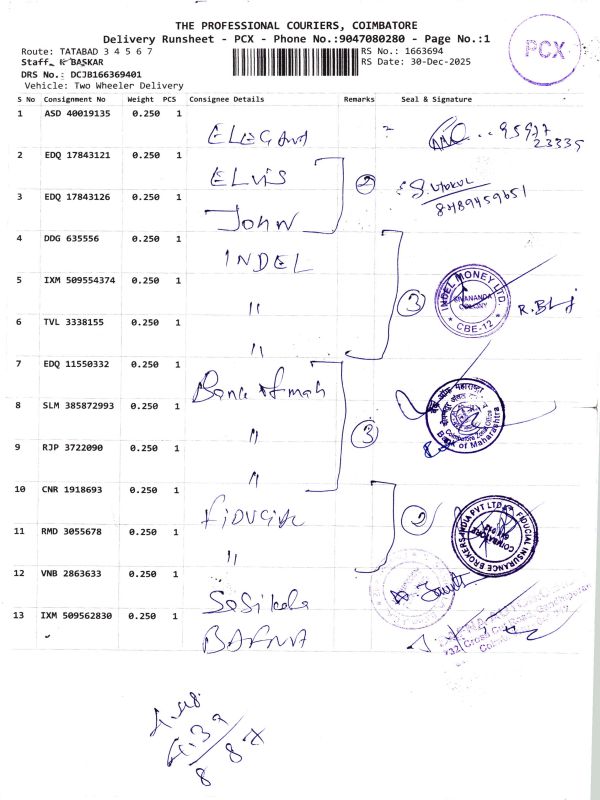 THE PROFESSIONAL COURIERS, COIMBATORE
Delivery Runsheet - PCX - Phone No.:9047080280 - Page No.:1
PCX
Route: TATABAD 3 4 5 6 7
RS No.: 1663694
Staff. K BASKAR
RS Date: 30-Dec-2025
DRS No.: DCJB166369401
Vehicle: Two Wheeler Delivery
S No Consignment No Weight PCS Consignee Details Remarks Seal & Signature
1 ASD 40019135 0.250 1 ELEGANT 95977
23335
2 EDQ 17843121 0.250 1 ELVIS 2
3 EDQ 17843126 0.250 1 JOHN 8489459651
4 DDG 635556 0.250 1 INDEL
5 IXM 509554374 0.250 1 " 3 INDEL MONEY LTD. SIVANANDA COLONY CBE-12
6 TVL 3338155 0.250 1 "
7 EDQ 11550332 0.250 1 Bank of mah
8 SLM 385872993 0.250 1 " 3 बैंक ऑफ महाराष्ट्र Coimbatore Zonal Office Bank of Maharashtra
9 RJP 3722090 0.250 1 "
10 CNR 1918693 0.250 1 FIDUCIAL 2 FIDUCIAL INSURANCE BROKERS INDIA PVT LTD COIMBATORE 641 012
11 RMD 3055678 0.250 1 "
12 VNB 2863633 0.250 1 Sasikala
13 IXM 509562830 0.250 1 BAFNA